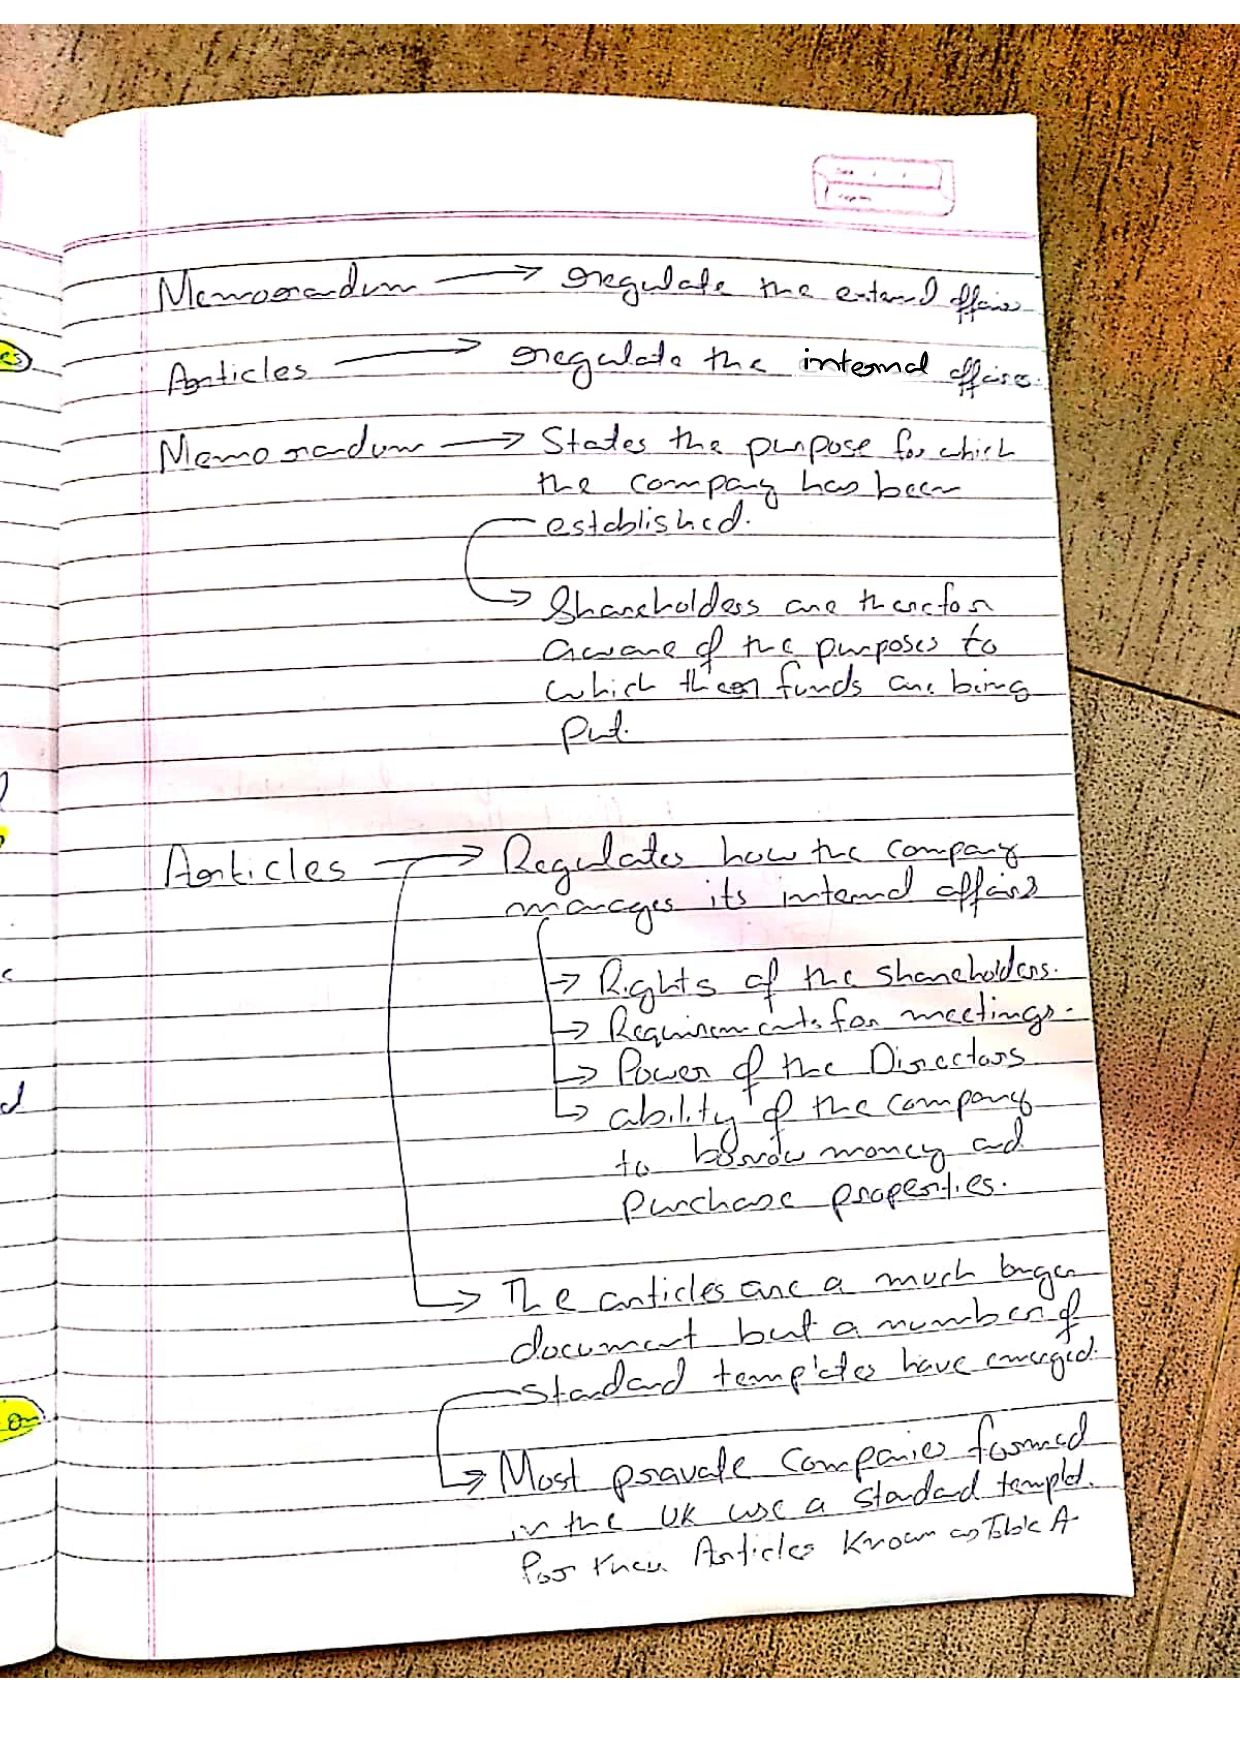 Memorandum → regulate the external affairs
Articles → regulate the internal affairs.
Memorandum → States the purpose for which
the company has been
established.
→ Shareholders are therefor
aware of the purposes to
which their funds are being
put.
Articles → Regulates how the company
manages its internal affairs
→ Rights of the shareholders.
→ Requirements for meetings.
→ Power of the Directors
→ ability of the company
to borrow money and
purchase properties.
→ The articles are a much longer
document but a number of
standard templates have emerged.
→ Most pravate Companies formed
in the UK use a standard templat.
For their Articles Known as Table A.
es
d
on